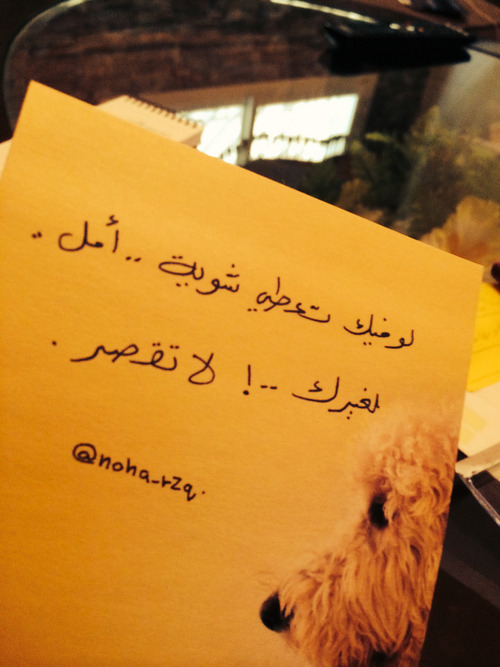 لو فيك تعطي شوية .. أمل ..
لغيرك .. ! لا تقصر .
@noha_rzq.